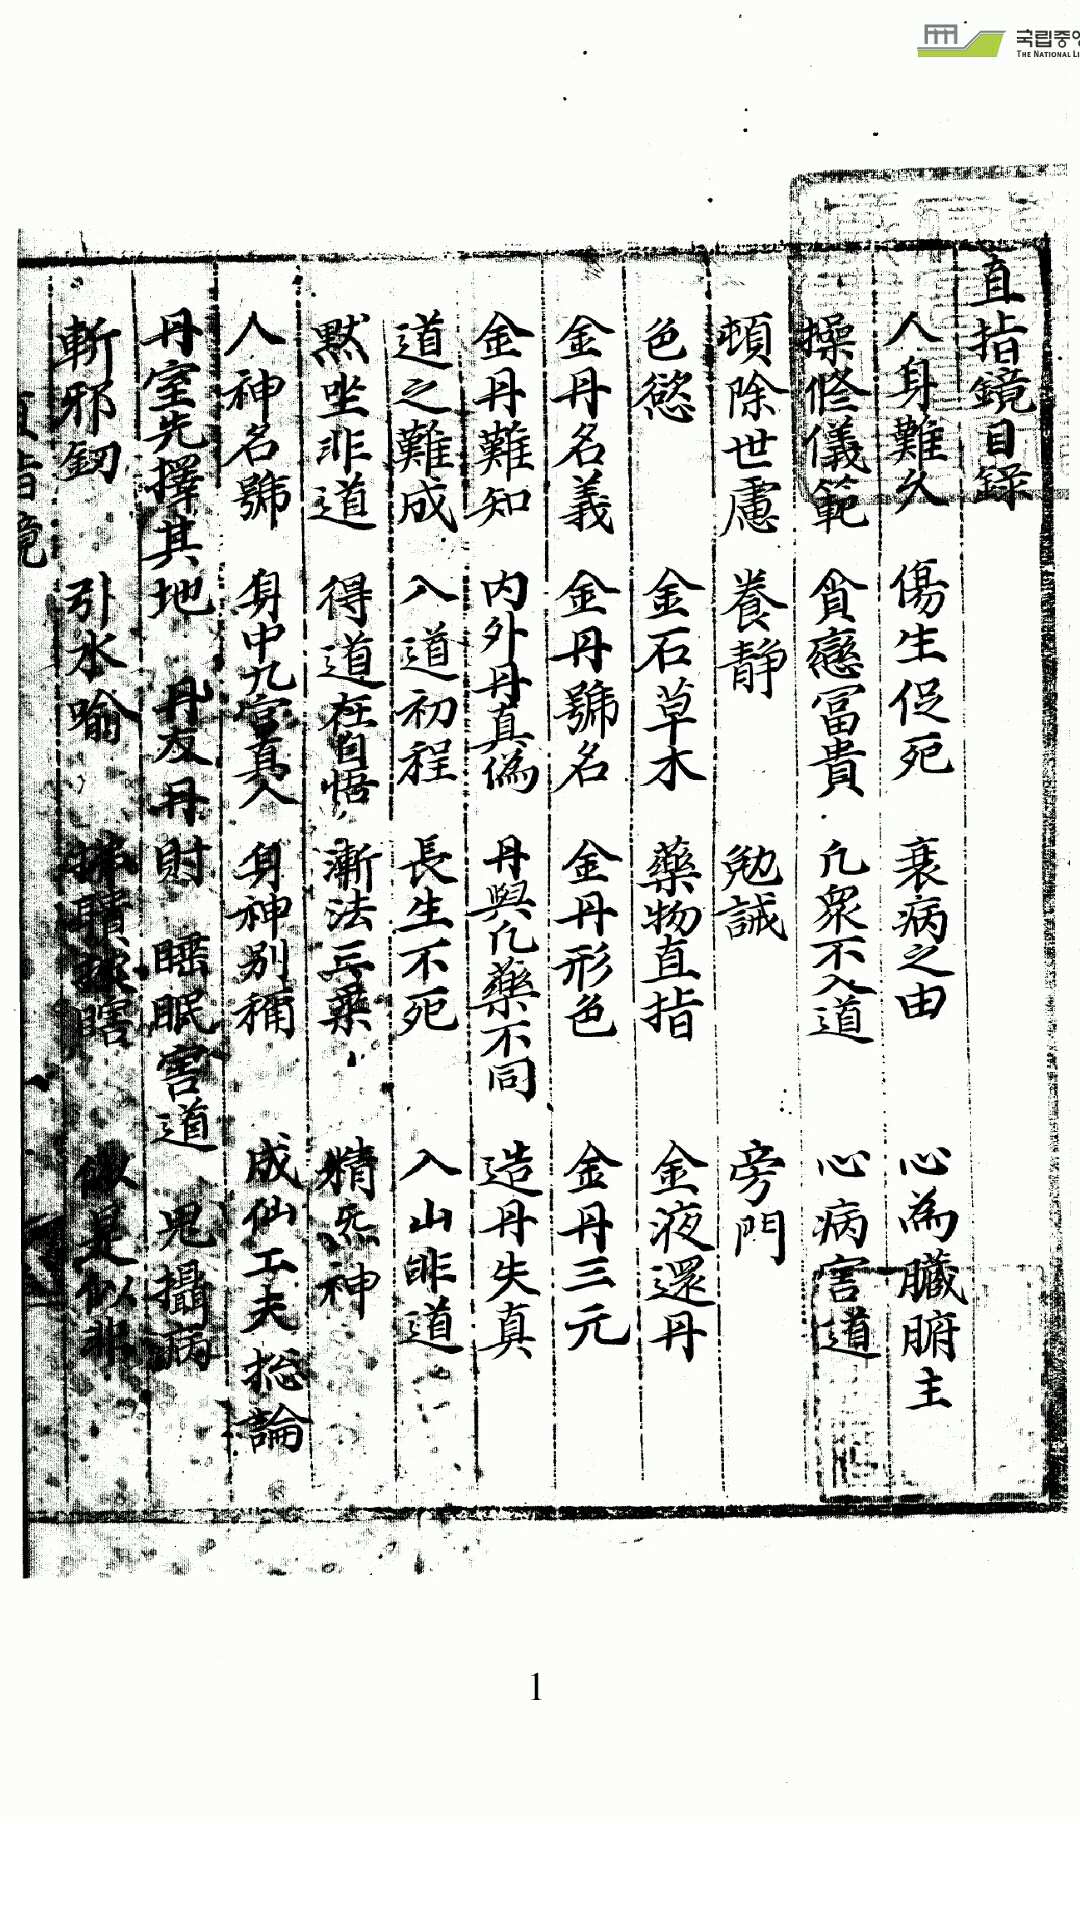 国립중앙
THE NATIONAL LI
直指鏡目録
人身難久 傷生促死 衰病之由 心為臟腑主
操修儀範 貪戀冨貴 凢衆不入道 心病害道
頓除世慮 養靜 勉誡 旁門
色慾 金石草木 藥物直指 金液還丹
金丹名義 金丹號名 金丹形色 金丹三元
金丹難知 内外丹真偽 丹與凢藥不同 造丹失真
道之難成 入道初程 長生不死 入山非道
黙坐非道 得道在自悟 漸法三乗 精炁神
人神名號 身中九宫真人 身神别稱 成仙工夫捴論
丹室先擇其地 丹友丹財 睡眠害道 鬼攝病
斬邪釰 引氷喻 瞎 似是似非
直指鏡
1